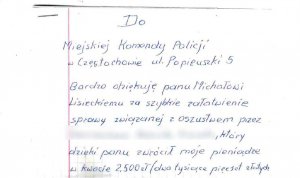 Do
Miejskiej Komendy Policji
w Częstochowie ul. Popiełuszki 5
Bardzo dziękuję panu Michałowi
Lisieckiemu za szybkie załatwienie
sprawy związanej z oszustwem przez
, który
dzięki panu zwrócił moje pieniądze
w kwocie 2,500 zł (dwa tysiące pięćset złotych